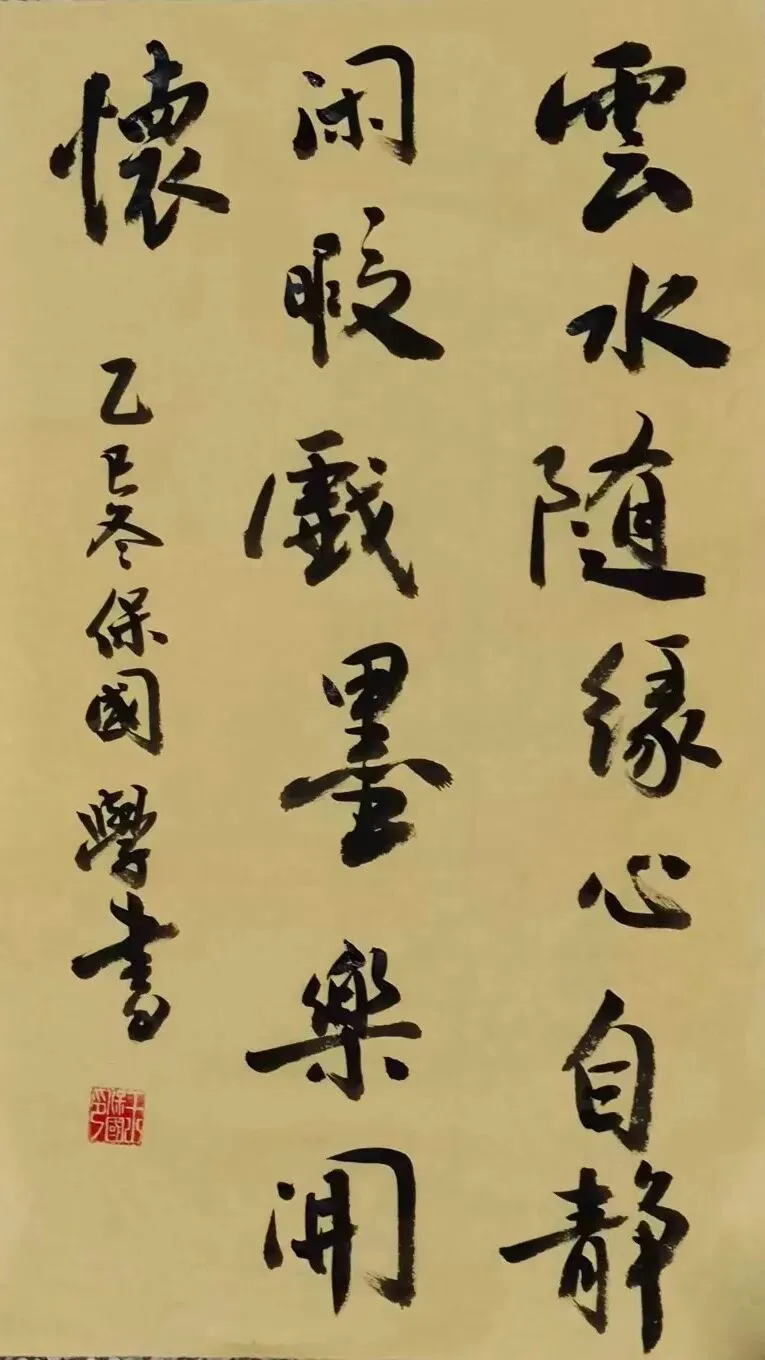 雲水随緣心自静
闲暇戲墨樂開
懷
乙巳冬保國學書